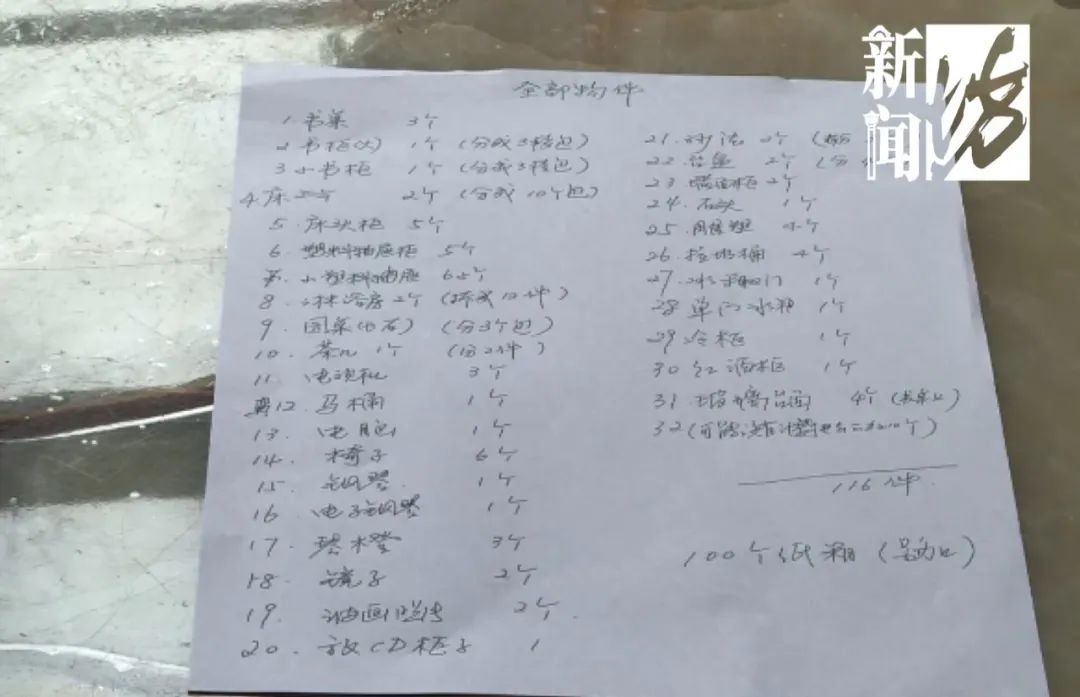 新闻坊
全部物件
1 书桌 3个
2 书柜(大) 1个 (分成3件包)
3 小书柜 1个 (分成3件包)
4. 床 2个 (分成10个包)
5. 床头柜 5个
6. 塑料抽屉柜 5个
小塑料抽屉 6个
8. 淋浴房 2个 (拆成10件)
9. 圆桌(大石) (分3个包)
10. 茶几 1个 (分2件)
11. 电视机 3个
12. 马桶 1个
13. 电脑 1个
14. 椅子 6个
15. 钢琴 1个
16. 电子钢琴 1个
17. 琴木凳 3个
18. 镜子 2个
19. 油画 2个
20. 放CD柜子 1
21. 沙发 2个
22. 2个 (分
23. 柜 2个
24. 石头 1个
25.
26. 垃圾桶 4个
27. 冰箱 门 1个
28 单门冰箱 1个
29 冷柜 1个
30 红酒柜 1个
31. 玻璃台面 4个
32 (可能没有计算
116件
100个纸箱